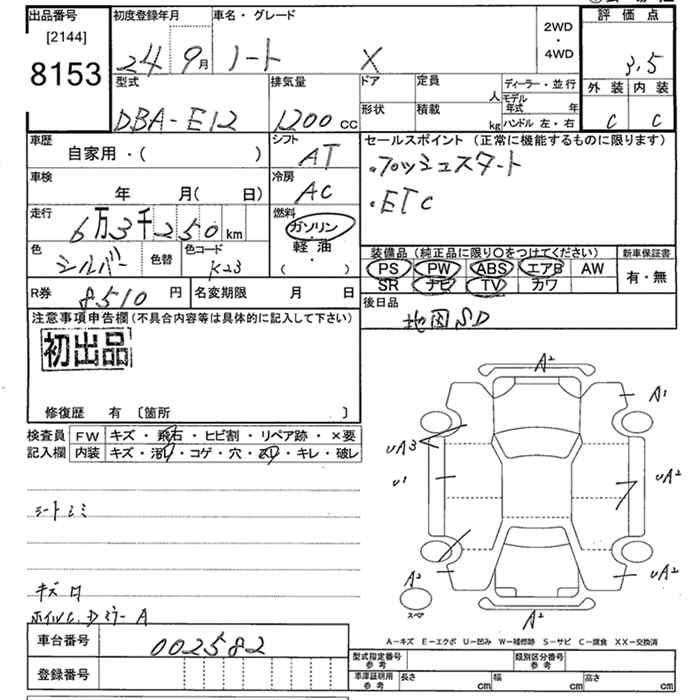 出品番号
[2144]
8153
初度登録年月
24 9月
車名・グレード
ノート X
2WD
・
4WD
評価点
3.5
外装 内装
C C
型式
DBA-E12
排気量
1200 cc
ドア
形状
定員 人
積載 kg
ディーラー・並行
モデル年式 年
ハンドル 左・右
車歴
自家用・( )
シフト
AT
セールスポイント (正常に機能するものに限ります)
・プッシュスタート
・ETC
車検
年 月( 日)
冷房
AC
走行
6万3千250km
燃料
ガソリン
・
軽油
・
( )
色
シルバー
色替
色コード
K23
装備品 (純正品に限り〇をつけてください)
PS PW ABS エアB AW
SR ナビ TV カワ
新車保証書
有・無
R券 8510 円
名変期限 月 日
後日品
地図SD
注意事項申告欄 (不具合内容等は具体的に記入して下さい)
初出品
修復歴 有 〔箇所 〕
検査員
記入欄
FW キズ・飛石・ヒビ割・リペア跡・×要
内装 キズ・汚レ・コゲ・穴・スリ・キレ・破レ
シートシミ
キズ
A²
A¹
UA3
U¹
UA²
UA²
A²
スペア
A²
A-キズ E-エクボ U-凹み W-補修跡 S-サビ C-腐食 XX-交換済
車台番号
002582
登録番号
型式指定番号
参考
類別区分番号
参考
車庫証明
参考
長さ cm
幅 cm
高さ cm